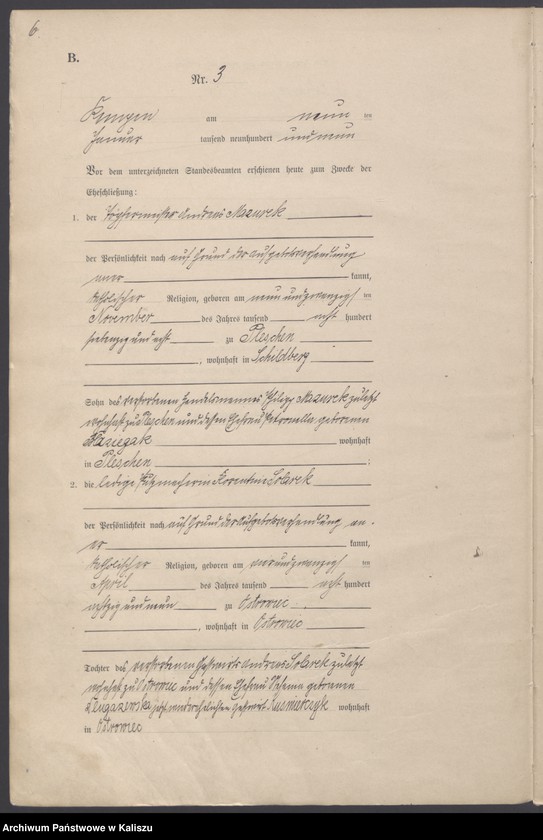 6
B.
Nr. 3
Kempen am neun ten
Januar tausend neunhundert und neun
Vor dem unterzeichneten Standesbeamten erschienen heute zum Zwecke der
Eheschließung:
1. der Töpfermeister Andreas Mazurek
der Persönlichkeit nach auf Grund der Aufgebotsverhandlung
aner kannt,
katholischer Religion, geboren am neunundzwanzigsten
November des Jahres tausend acht hundert
siebenzig und acht zu Pleschen
, wohnhaft in Schildberg
Sohn des verstorbenen Handelsmannes Philipp Mazurek zuletzt
wohnhaft zu Pleschen und dessen Ehefrau Petronella geborenen
wohnhaft
in Pleschen ;
2. die ledige Putzmacherin Florentine Solarek
der Persönlichkeit nach auf Grund der Aufgebotsverhandlung an-
er kannt,
katholischer Religion, geboren am vierundzwanzigsten
April des Jahres tausend acht hundert
achtzig und neun zu Ostrowiec
, wohnhaft in Ostrowiec
Tochter des verstorbenen Gastwirts Andreas Solarek zuletzt
wohnhaft zu Ostrowiec und dessen Ehefrau geborenen
jetzt verehelichten wohnhaft
in Ostrowiec
Archiwum Państwowe w Kaliszu